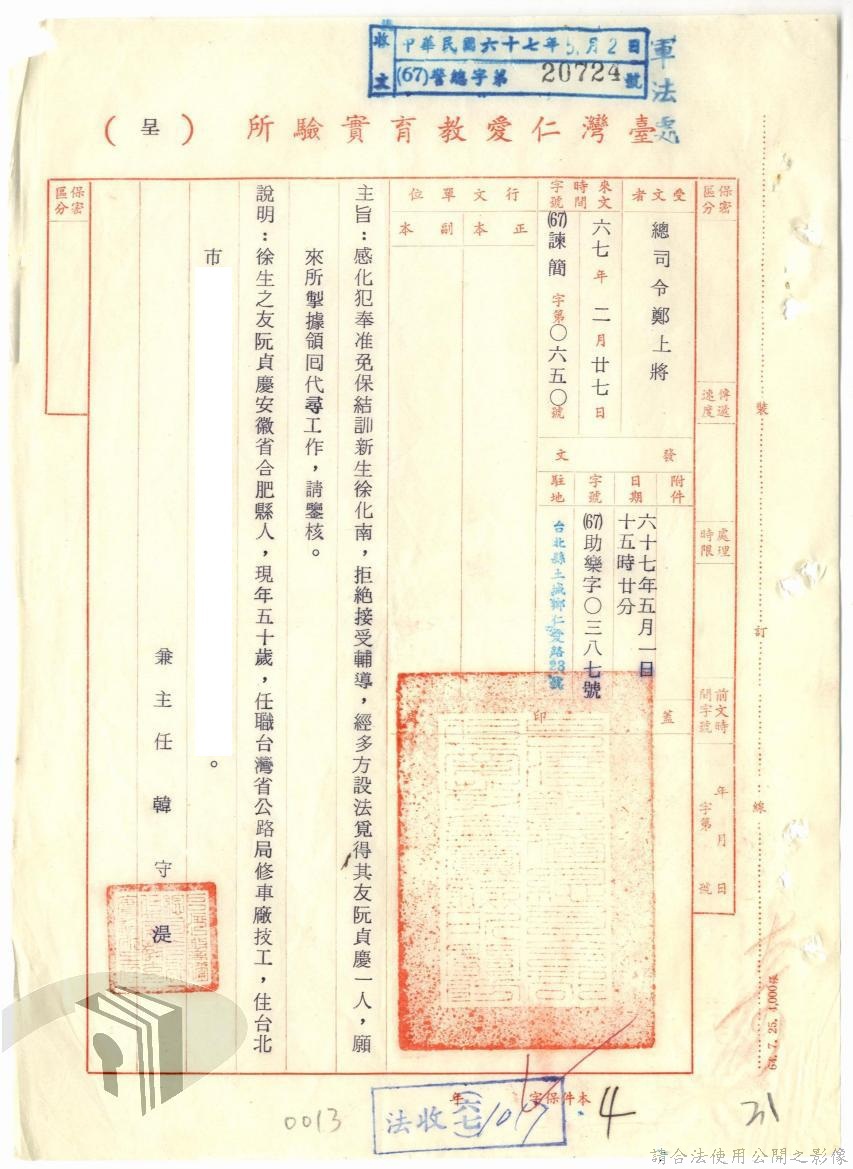 收文 中華民國六十七年5月2日
(67)警總字第 20724 號
軍法處
臺灣仁愛教育實驗所（呈）
保密區分
傳遞速度
處理時限
前文時間字號
年月日
字第 號
受文者
總司令鄭上將
來文時間字號
六七年二月廿七日
(67)諫簡字第〇六五〇號
發文
附件
日期
六十七年五月一日十五時廿分
字號
(67)助樂字〇三八七號
駐地
台北縣土城鄉仁愛路23號
行文單位
正本
副本
蓋印處
主旨：感化犯奉准免保結訓新生徐化南，拒絕接受輔導，經多方設法覓得其友阮貞慶一人，願
來所掣據領回代尋工作，請鑒核。
說明：徐生之友阮貞慶安徽省合肥縣人，現年五十歲，任職台灣省公路局修車廠技工，住台北
市
。
兼主任 韓守湜
保密區分
裝
訂
線
64.7.25.4,000張
本件保字
年
4
法收(六七)1017
0013
21
請合法使用公開之影像